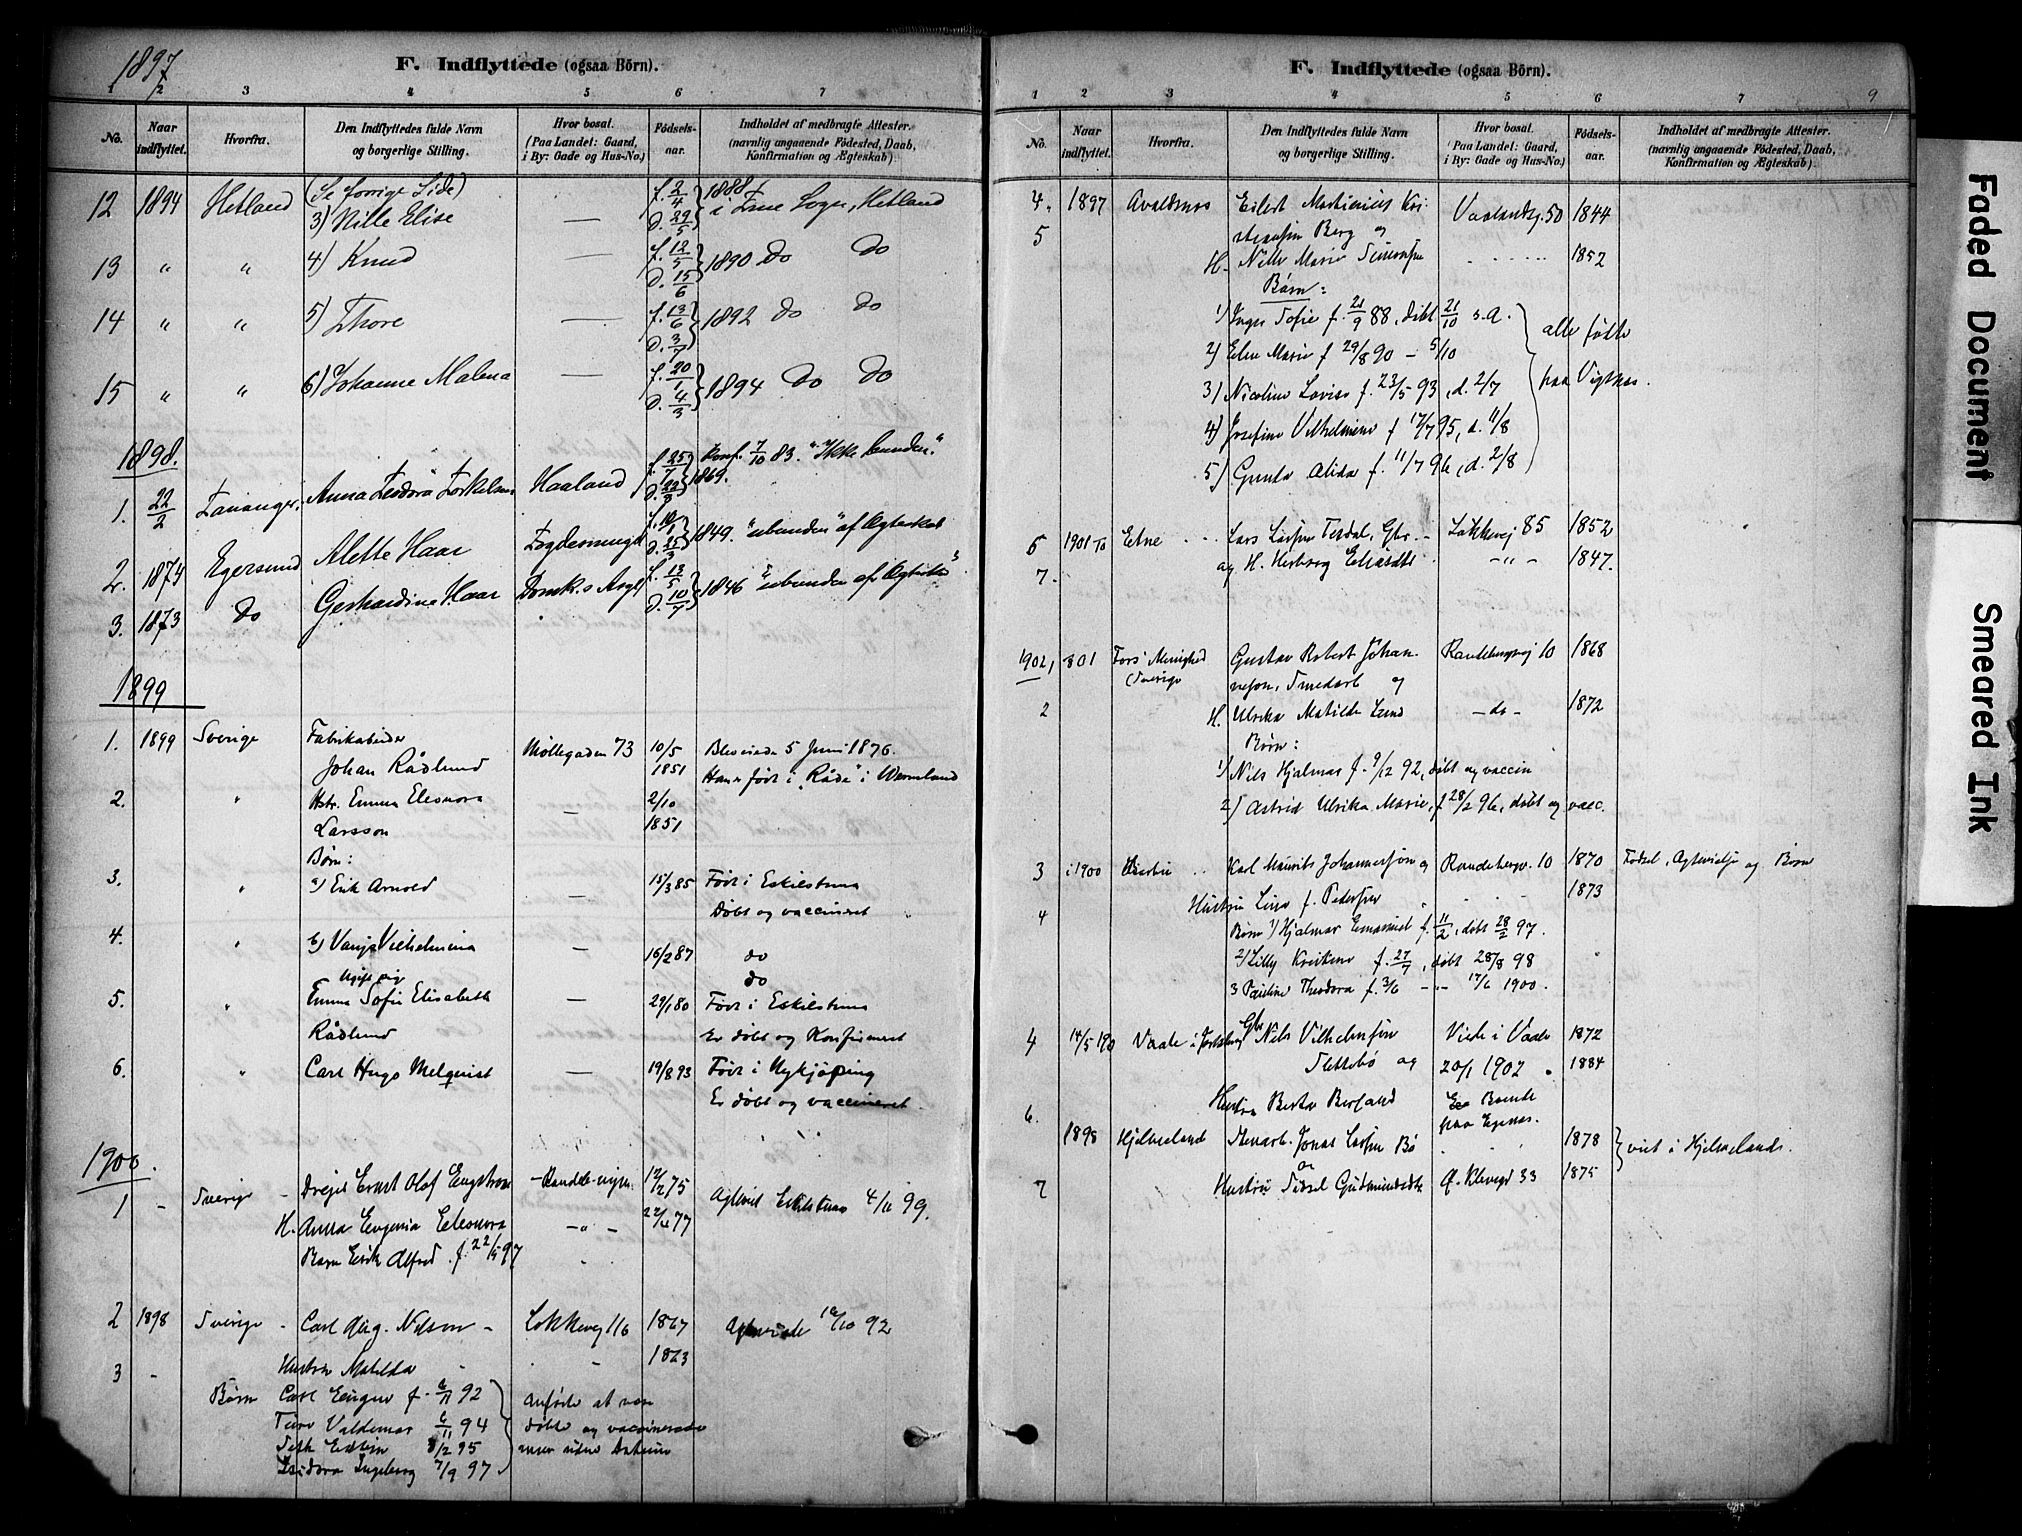 1897
F. Indflyttede (ogsaa Börn).
1 2 3 4 5 6 7
No. Naar indflyttet. Hvorfra. Den Indflyttedes fulde Navn og borgerlige Stilling. Hvor bosat. (Paa Landet: Gaard, i By: Gade og Hus-No.) Födsels-aar. Indholdet af medbragte Attester. (navnlig angaaende Födested, Daab, Konfirmation og Ægteskab)
12 1894 Hetland (Se forrige Side)
3) Nille Elise — f. 2/4 D. 29/5 1888 i Frue Sogn, Hetland
13 " " 4) Knud — f. 12/5 D. 15/6 1890 do do
14 " " 5) Thore — f. 13/6 D. 3/7 1892 do do
15 " " 6) Johanne Malena — f. 20/1 D. 4/3 1894 do do
1898.
1. 22/2 Tananger. Anna Teodora Torkelsen Haaland f. 25/7 1869. Konf. 7/10 83. "Ikke bunden."
2. 1874 Egersund Alette Haar 1849. "ubunden" af Ægteskab
3. 1873 do Gerhardina Haar Domk.s Aryl f. 13/5 D. 10/7 1846 "ubunden af Ægtesk."
1899
1. 1899 Sverige Fabrikabeider
Johan Rådlund Møllegaden 73 10/5 1851 Bleviede 5 Juni 1876.
Han er født i "Råda" i Wermland
2. " Hstr. Emma Eleonora
Larsson — 2/10 1851
Børn:
3. " a) Erik Arnold — 15/3 85 Født i Eskilstuna
Døbt og vaccineret
4. " b) Vanja Vilhelmina — 16/2 87 do
do
Ugift pige
5. " Emma Sofie Elisabeth — 29/1 80 Født i Eskilstuna
Rådlund Er døbt og Konfirmeret
6. " Carl Hugo Melquist — 19/8 93 Født i Nykjöping
Er døbt og vaccineret.
1900.
1 - Sverige - Drejer Ernst Olof Engstrøm 12/2 75 Ægteviet Eskilstuna 4/11 99.
H. Anna Eugenia Eleonora - " - 22/4 77
Barn Erik Alfred. f. 22/5 97
2 1898 Sverige - Carl Aug. Nilson - Løkkevej 116 1867 Ægteviede 10/10 92
3 - Hustru Matilda - 1863
Børn Carl Eugen f. 6/11 92 Anføres at være
Ture Valdemar 6/11 94 døbte og vaccinerede
Seth Edvin 8/2 95 men uden Attester
Isidora Ingeborg 7/9 97
F. Indflyttede (ogsaa Börn).
9
1 2 3 4 5 6 7
No. Naar indflyttet. Hvorfra. Den Indflyttedes fulde Navn og borgerlige Stilling. Hvor bosat. (Paa Landet: Gaard, i By: Gade og Hus-No.) Födsels-aar. Indholdet af medbragte Attester. (navnlig angaaende Födested, Daab, Konfirmation og Ægteskab)
4. 1897 Avaldsnes Eilert Martinius Kri-
stensen Berg og Vaalandsg. 50 1844
5 H. Nille Marie Simonsen . . . . 1852
Børn:
1) Inger Sofie f. 21/9 88, døbt 21/10 s.A.
2) Elen Marie f 29/8 90 - 5/10 alle fødte
3) Nicoline Lovise f. 23/5 93, d. 2/7 paa Vigsnes.
4) Josefine Vilhelmine f 17/7 95, d. 11/8
5) Gunda Alida f. 11/7 96, d. 2/8
6 1901 Etne . . Lars Larsen Tesdal, Gbr. - Løkkevej 85 1852
7. og H. Herborg - " - 1847.
1902, 1 Fors Menighed Gustav Robert Johan- Randebergvej 10 1868
Sverige nesson, Smedarb og
2 H. Ulrika Matilde Lund - do - 1872
Børn:
1) Nils Hjalmar f. 9/12 92, døbt og vaccin
2) Astrid Ulrika Marie, f 28/2 96, døbt og vacc.
3 i 1900 Karl Maurits Johannessøn og Randebergv. 10 1870 Fødsel, Ægtevielse og Børn
4 Hustru Lina f. Pedersen 1873
Børn 1) Hjalmar Emanuel f. 11/2, døbt 28/2 97.
2) Lilly Kristine f. 27/7, døbt 28/8 98
3 Pauline Theodora f. 3/6 - " - 17/6 1900.
4 14/5 190 Vaale i Jarlsberg Gbr Nils Vilhelmsen Viede i Vaale 1872
Slettebø og 20/1 1902 1884
6. Hustru Berta Berfand Er Boende
paa Egenæs.
1898 Hjelmeland Stenarb. Jonas Larsen Bø 1878 viet i Hjelmeland.
og
7 Hustru Sidsel Gudmundsdt. Ø. Klevegd 33 1875
Faded Document
Smeared Ink